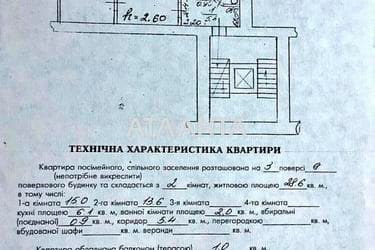 h = 2.60
АТЛАНТА
ТЕХНІЧНА ХАРАКТЕРИСТИКА КВАРТИРИ
Квартира посімейного, спільного заселення розташована на 3 поверсі 9
(непотрібне викреслити)
поверхового будинку та складається з 2 кімнат, житловою площею 28.6 кв. м,
в тому числі:
1-а кімната 15.0 2-га кімната 13.6 3-я кімната 4-та кімната
кухні площею 6.1 кв. м, ванної кімнати площею 2.0 кв. м, вбиральні
(поєднаної) 0.9 кв. м, коридор 5.4 кв. м, перегородкою кв. м,
вбудованої шафи кв. м, веранди кв. м.
Квартира обладнана балконом (терасою) 1.0 кв. м.